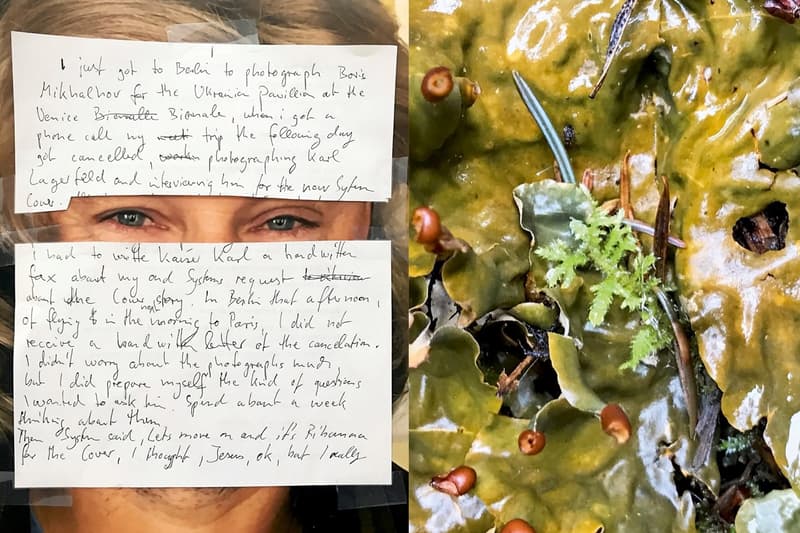 I just got to Berlin to photograph Boris
Mikhalhov for the Ukranian Pavillion at the
Venice Bienale, when i got a
phone call my trip the following day
got cancelled, photographing Karl
Lagerfeld and interviewing him for the new System
Cover.
i had to write Kaiser Karl a handwritten
fax about my and Systems request
about the Cover story. In Berlin that afternoon,
of flying in the morning to Paris, I did not
receive a hand letter of the cancelation.
I didn't worry about the photographs much
but I did prepare myself the kind of questions
I wanted to ask him. Spend about a week
thinking about them.
Then System said, Lets move on and it's Rihanna
for the Cover, I thought, Jesus, ok, but I really